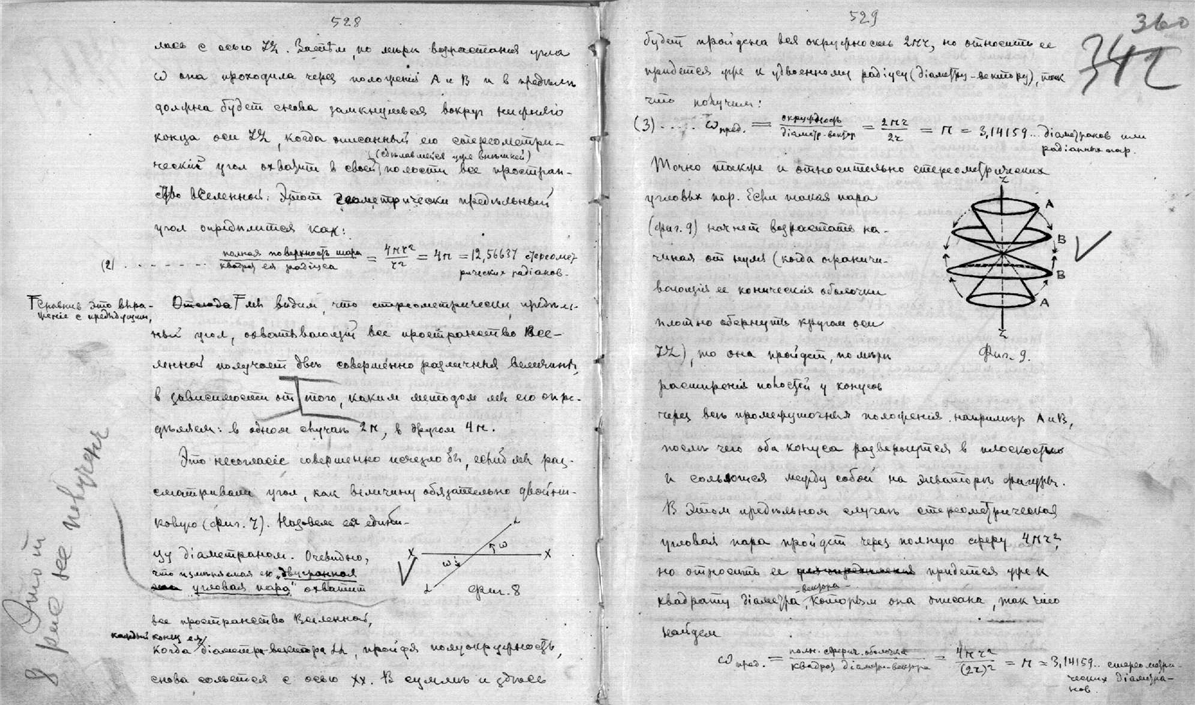 528
лась с осью ZZ. Затем, по мере возрастания угла
ω она проходила через положения A и B и в пределе
должна будет снова замкнуться вокруг нижнего
конца оси ZZ, когда описанный ею стереометри-
ческий угол охватит в своей полости все простран-
ство вселенной. Этот геометрически предельный
угол определится как:
(2) . . . . . . . . полная поверхность шара / квадрат ея радиуса = 4πr² / r² = 4π = 12,56637 стереомет-
рических радианов.
Сравнив это выра-
жение с предыдущим,
Отсюда мы видим, что стереометрически предель-
ный угол, охватывающий все пространство Все-
ленной получает две совершенно различныя величины,
в зависимости от того, каким методом мы его опре-
деляем: в одном случае 2π, в другом 4π.
Это несогласие совершенно исчезло бы, если б мы рас-
сматривали угол, как величину обязательно двойни-
ковую (фиг. 7). Назовем ея едини-
цу діаметраном. Очевидно,
что измеряемая ею „двусторонняя
угловая пара" охватит
все пространство Вселенной,
каждый конец ея
когда діаметра-вектора LL, пройдя полуокружность,
снова сольется с осью XX. В сумме и здесь
X X
L L
ω ω
Фиг. 8
Этот
рисунок получен
529
360
342
будет пройдена вся окружность 2πr, но относить ее
придется уже к удвоенному радіусу (діаметру-вектору), так
что получим:
(3) . . . . ω пред. = окружность / діаметр-вектор = 2πr / 2r = π = 3,14159.. діаметранов или
радианных пар.
Точно также и относительно стереометрических
угловых пар. Если такая пара
(фиг. 9) начнет возрастать на-
чиная от нуля (когда ограничи-
вающія ее коническія оболочки
плотно обернуты кругом оси
ZZ), то она пройдет, по мере
расширенія полостей у конусов
через все промежуточныя положенія например A и B,
после чего оба конуса развернутся в плоскость
и сольются между собой на экваторе фигуры.
В этом предельном случае стереометрическая
угловая пара пройдет через полную сферу 4πr²,
но относить ее придется уже к
квадрату діаметра-вектора, которым она описана, так что
найдем
ω пред. = полн. сферич. оболочка / квадрат діаметр-вектора = 4πr² / (2r)² = π = 3,14159.. стереометри-
ческих діаметра-
нов.
Z
A
B
B
A
Z
Фиг. 9.